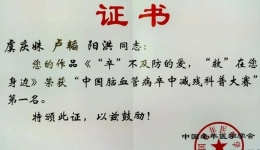 证书
虞庆妹 卢韬 阳洪 同志：
您的作品《“卒”不及防的爱，“救”在您
身边》荣获“中国脑血管病卒中减残科普大赛”
第一名。
特颁此证，以兹鼓励！
中国老年医学学会